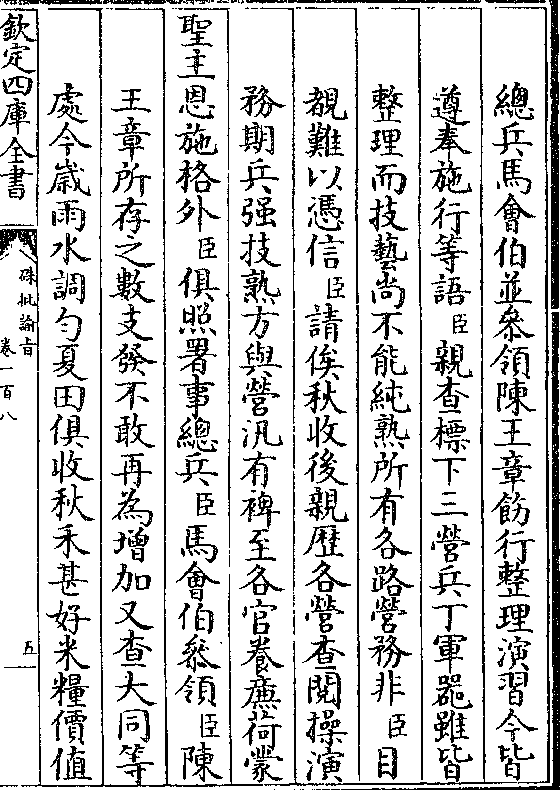 總兵馬會伯並叅領陳王章飭行整理演習今皆
遵奉施行等語臣親查標下三營兵丁軍器雖皆
整理而技藝尚不能純熟所有各路營務非臣目
覩難以憑信臣請俟秋收後親歷各營查閱操演
務期兵强技熟方與營汛有裨至各官養廉荷蒙
聖主恩施格外臣俱照署事總兵臣馬會伯叅領臣陳
王章所存之數支發不敢再為增加又查大同等
處今歲雨水調勻夏田俱收秋禾甚好米糧價值
欽定四庫全書
硃批諭旨
卷一百八
五